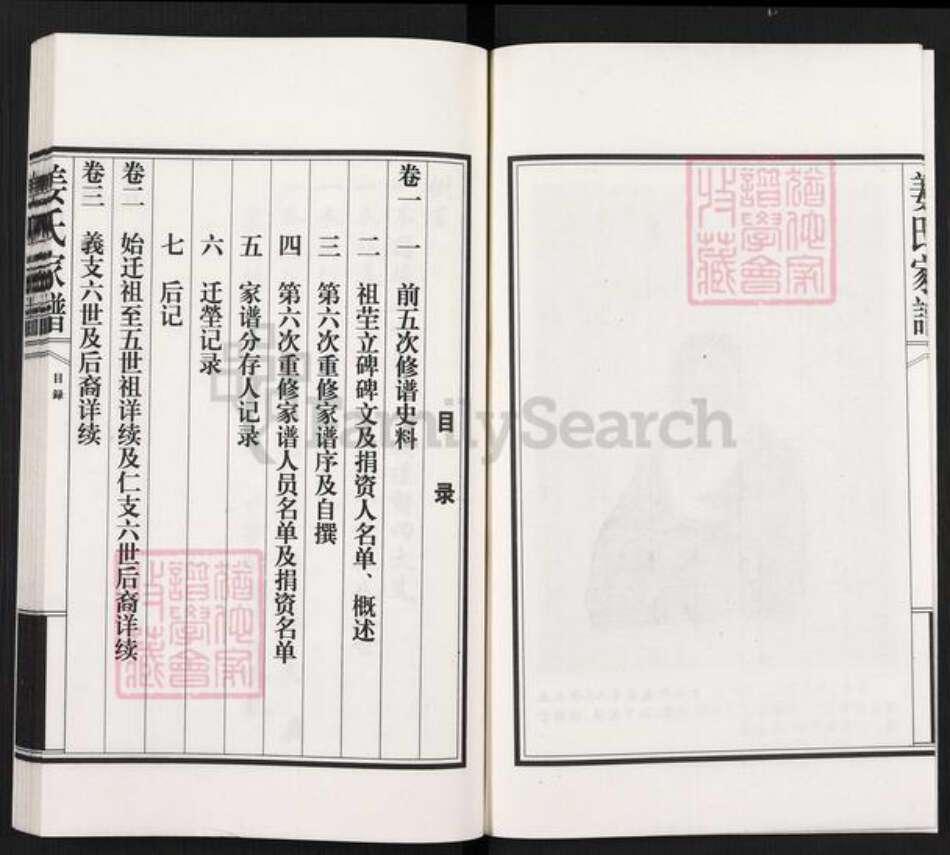 姜氏家譜
目录
卷一 一 前五次修谱史料
二 祖茔立碑碑文及捐资人名单、概述
三 第六次重修家谱序及自撰
四 第六次重修家谱人员名单及捐资名单
五 家谱分存人记录
六 迁塋记录
七 后记
卷二 始迁祖至五世祖详续及仁支六世后裔详续
卷三 義支六世及后裔详续
姜氏家譜
目錄
FamilySearch
猶他家
譜學會
收藏
猶他家
譜學會
收藏